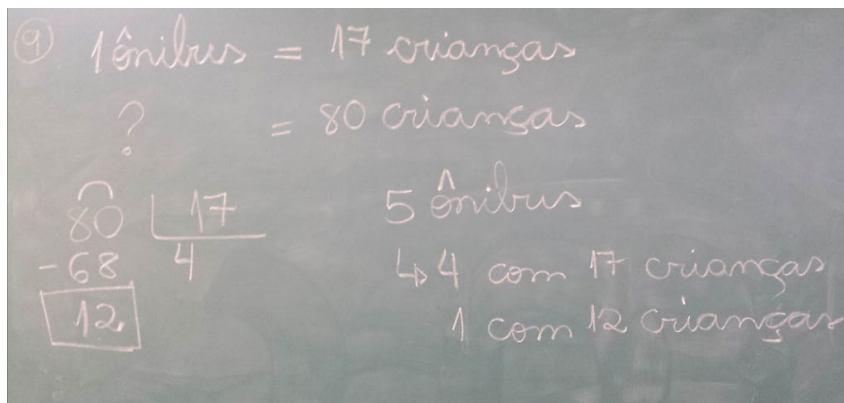 9 1 ônibus = 17 crianças
? = 80 crianças
80 17
-68 4
12
5 ônibus
↳ 4 com 17 crianças
1 com 12 crianças